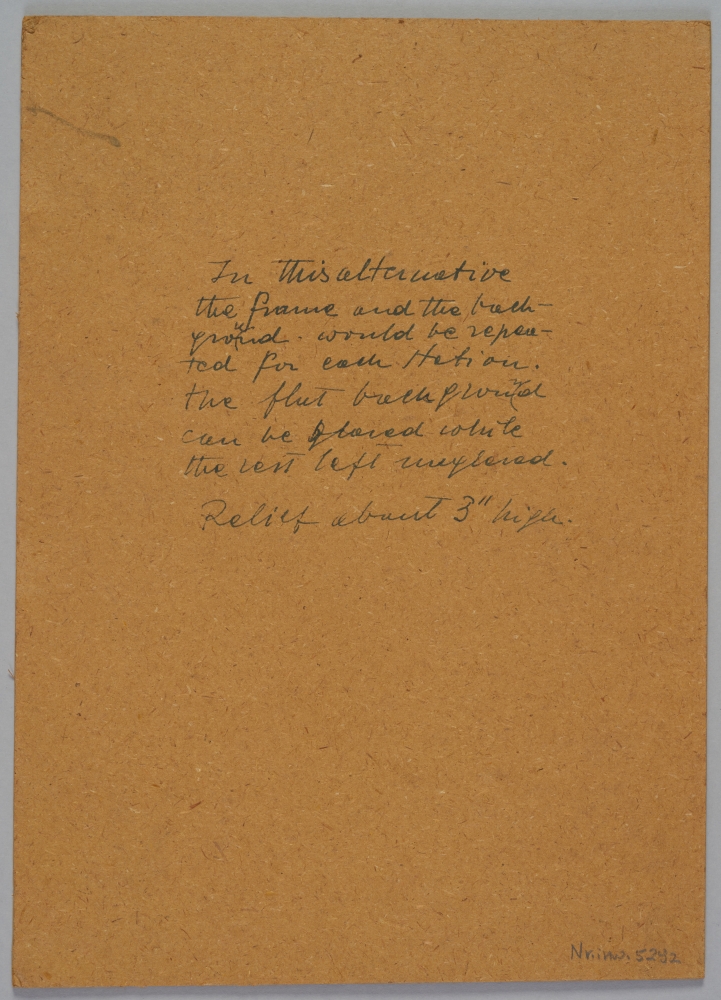 In this alternative
the frame and the back-
ground. would be repea-
ted for each Station.
the flat background
can be glazed while
the rest left unglazed.
Relief about 3" high.
Nr.inw. 5292